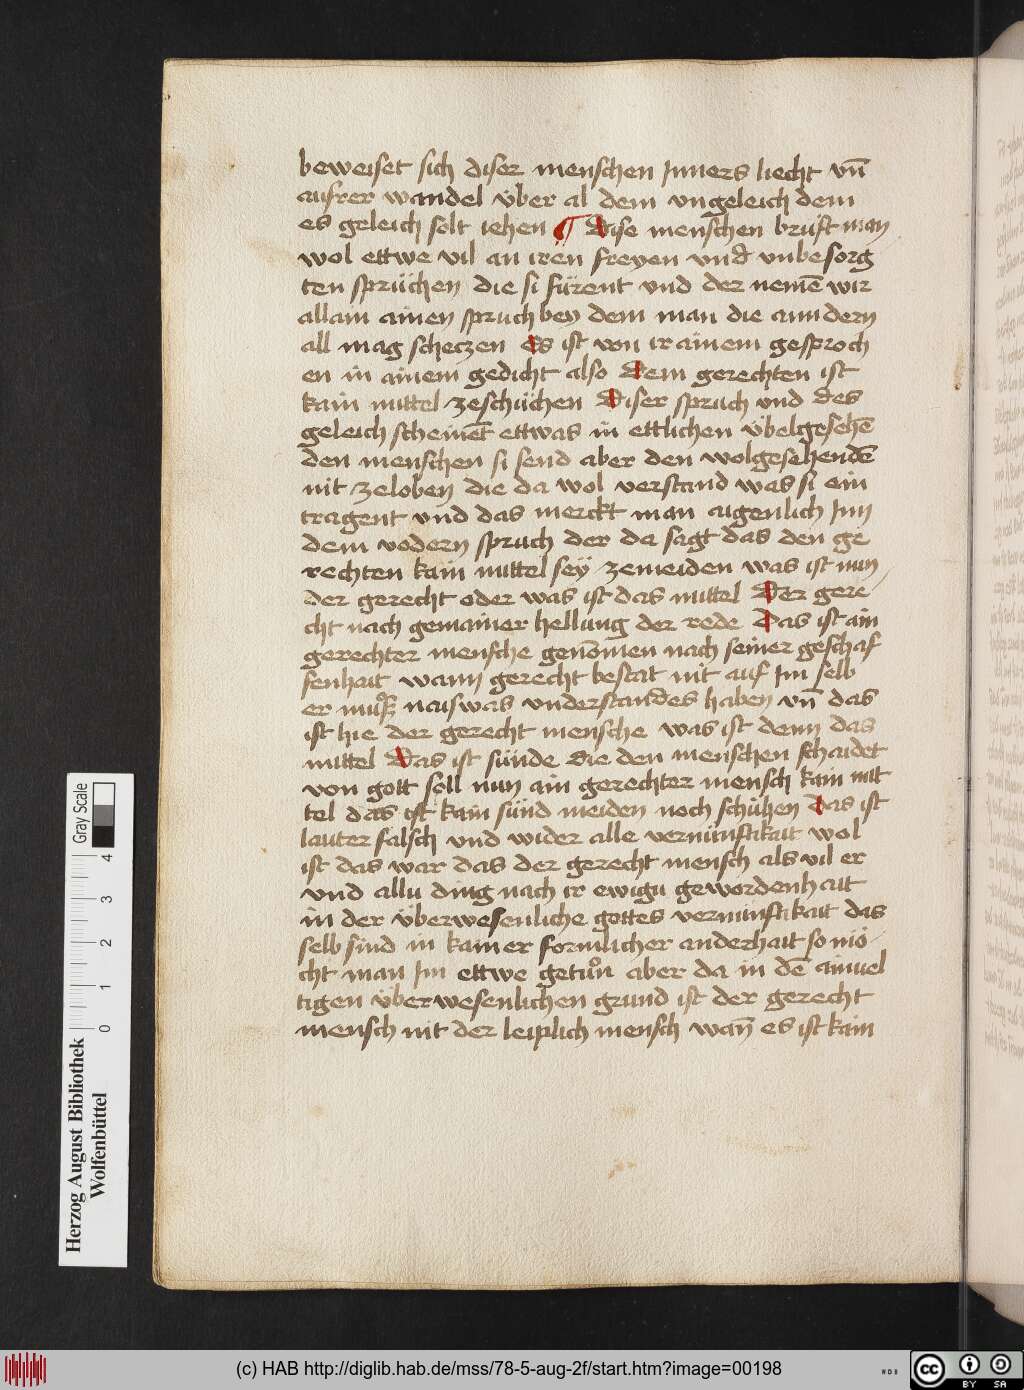 beweiset sich diser menschen Inners liecht vn̄
aufrer wandel v̈ber al dem vngeleich dem
es geleich solt iehen ¶ Dise menschen bruft man
wol ettwe vil an iren freyen vnd vnbesorg
ten sprüchen die si fürent vnd der nemē wir
allain ainen spruch bey dem man die anndern
all mag scheczen Es ist von ir ainem gesproch
en in ainem gedicht also Dem gerechten ist
kain mittel zeschüchen Diser spruch vnd des
geleich scheinēt ettwas in ettlichen v̈belgesehē
den menschen si send aber den wolgesehendē
nit zeloben die da wol verstand was si ein
tragent vnd das merckt man augenlich Inn
dem vodern spruch der da sagt das den ge
rechten kain mittel sey zemeiden was ist nun
der gerecht oder was ist das mittel Der gere
cht nach gemainer hellung der rede Das ist ain
gerechter mensche genōmen nach seiner geschaf
fenhait wann gerecht bestat nit auf Im selb
er muͦß naiswas vnderstandes haben vn̄ das
ist hie der gerecht mensche was ist denn das
mittel Das ist sünde die den menschen schaidet
von gott soll nun ain gerechter mensch kain mit
tel das ist kain sünd meiden noch schühen Das ist
lauter falsch vnd wider alle vernünftikait wol
ist das war das der gerecht mensch als vil er
vnd allu ding nach ir ewigu gewordenhait
in der v̈berwesenliche gottes vernünftikait das
selb sind in kainer formlicher anderhait so mö
cht man Im ettwe getuͦn aber da in dē ainuel
tigen v̈berwesenlichen grund ist der gerecht
mensch nit der leiplich mensch wan̄ es ist kain
Herzog August Bibliothek
Wolfenbüttel
Gray Scale
0 1 2 3 4
(c) HAB http://diglib.hab.de/mss/78-5-aug-2f/start.htm?image=00198
WDB
cc BY SA